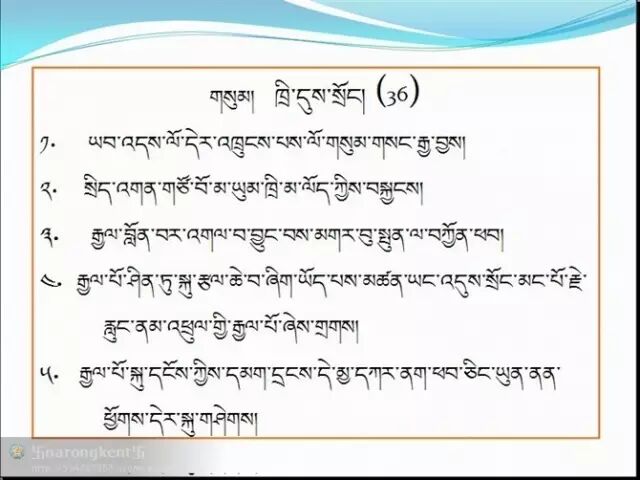 གསུམ། ཁྲི་དུས་སྲོང། (36)
༡. ཡབ་འདས་ལོ་དེར་འཁྲུངས་པས་ལོ་གསུམ་གསང་རྒྱ་བྱས།
༢. སྲིད་འགན་གཙོ་བོ་མ་ཡུམ་ཁྲི་མ་ལོད་ཀྱིས་བསྐྱངས།
༣. རྒྱལ་བློན་བར་འགལ་བ་བྱུང་བས་མགར་བུ་སྤུན་ལ་བཀྱོན་ཕབ།
༤. རྒྱལ་པོ་ཤིན་ཏུ་སྐུ་རྩལ་ཆེ་བ་ཞིག་ཡོད་པས་མཚན་ཡང་འདུས་སྲོང་མང་པོ་རྗེ་
རླུང་ནམ་འཕྲུལ་གྱི་རྒྱལ་པོ་ཞེས་གྲགས།
༥. རྒྱལ་པོ་སྐུ་དངོས་ཀྱིས་དམག་དྲངས་དེ་མྱ་དཀར་ནག་ཕབ་ཅིང་ཡུན་ནན་
ཕྱོགས་དེར་སྐུ་གཤེགས།
卐narongkent卐